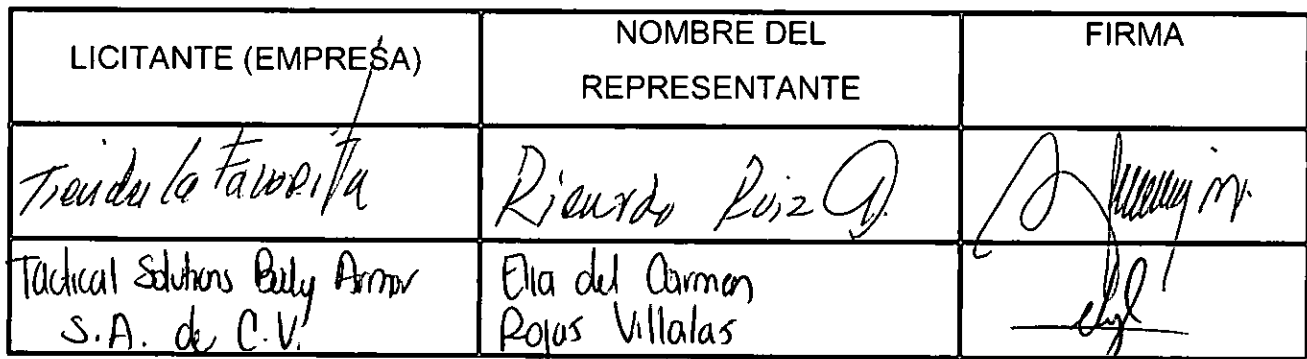 LICITANTE (EMPRESA)
NOMBRE DEL
REPRESENTANTE
FIRMA
Tienda la Favorita
Ricardo Ruiz G.
Tactical Solutions Body Armor
S.A. de C.V.
Elia del Carmen
Rojas Villalas